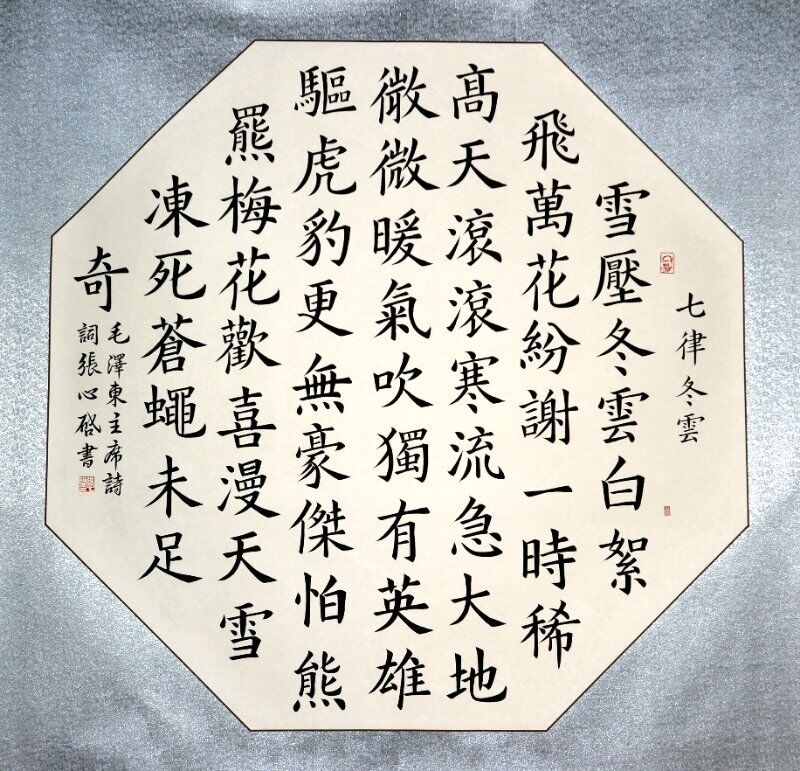 七律冬雲
雪壓冬雲白絮
飛萬花紛謝一時稀
髙天滾滾寒流急大地
微微暖氣吹獨有英雄
驅虎豹更無豪傑怕熊
羆梅花歡喜漫天雪
凍死蒼蠅未足
奇
毛澤東主席詩
詞張心啓書